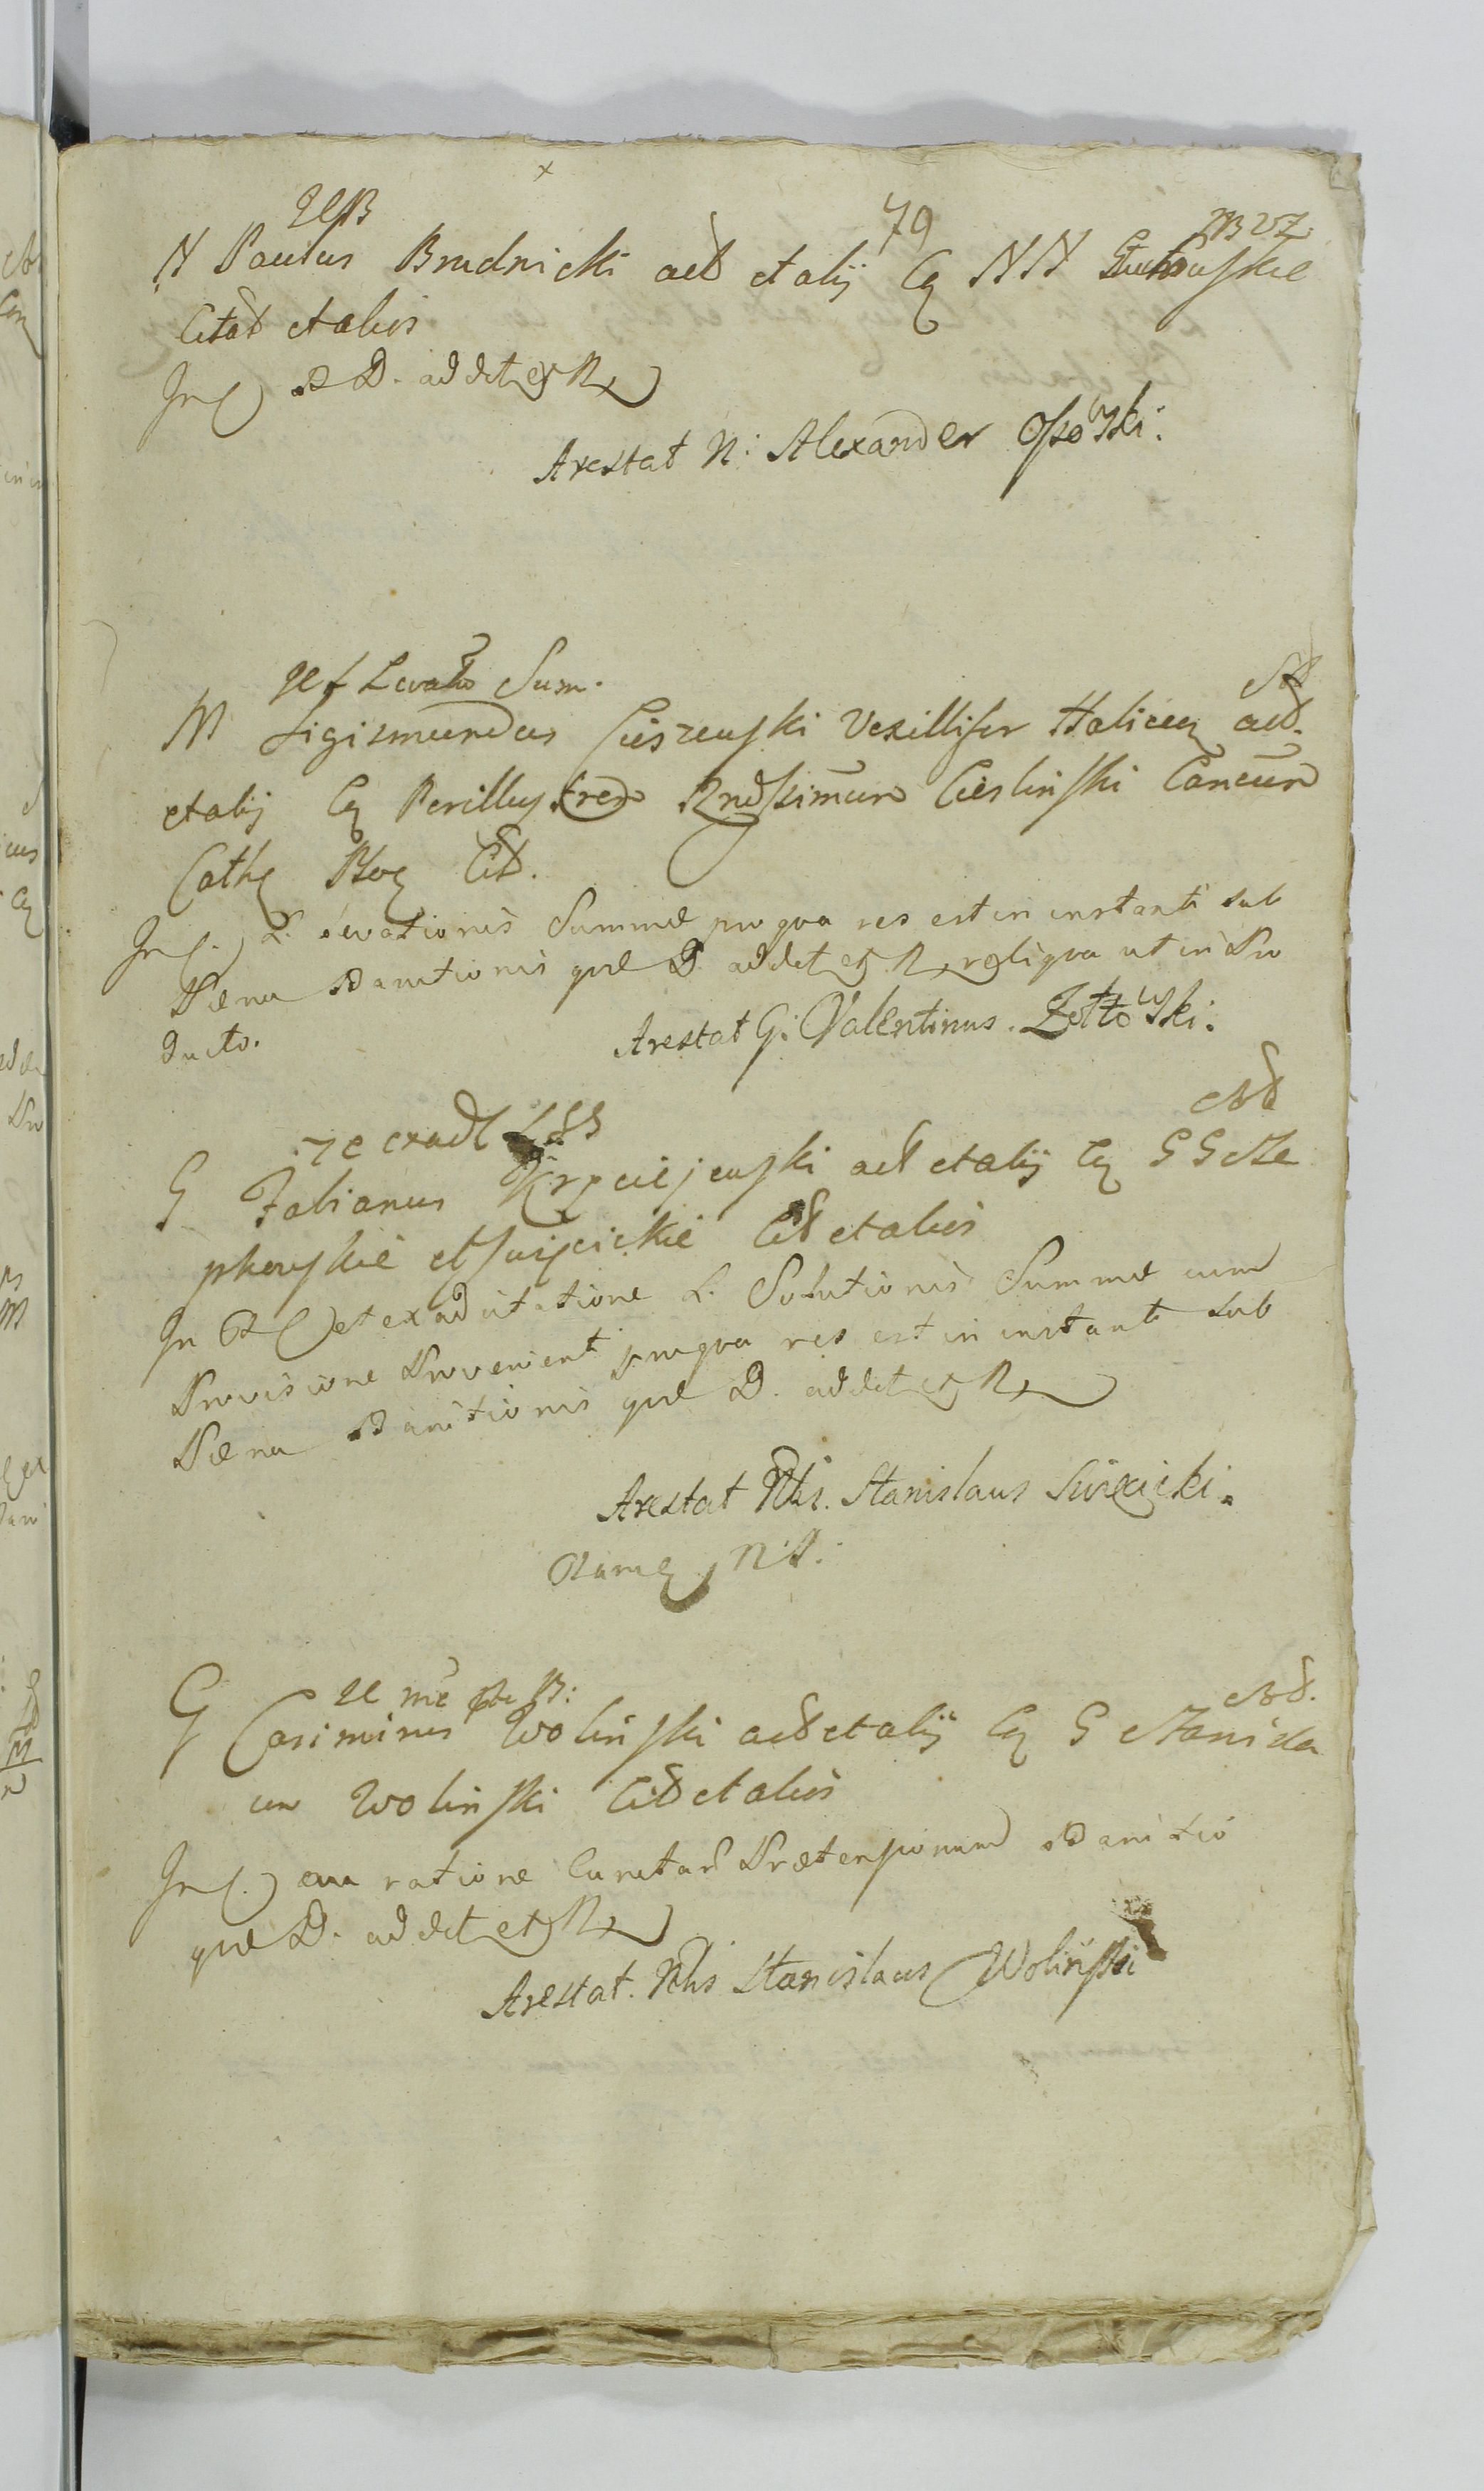 79
N Paulus Brudnicki act et alij Cq NN
Citat et alios
In C B D. addet et R
Arestat N: Alexander Ossowski.
Levatio Sum.
M Sigismundus Cieszewski Vexillifer Halicen act.
et alij Cq Perillustrem Rndssimum Ciesliński Cancun
Cath Cit.
In C. L. Levationis Summæ pro qua res est in instanti sub
Pæna Banitionis quæ D. addet et R reliqua ut in Pro
ducto.
Arestat G: Valentinus. Zołtowski.
G Fabianus Krzciejewski act et alij Cq GG Ste
phowskie et Swiżcickie Cit et alios
In C et ex adcitatione L. Solutionis Summæ cum
Provisione Provenient pro qua res est in instanti sub
Pæna Banitionis quæ D. addet et R
Arestat Nbs. Stanislaus Swiżcicki.
G Casimirus Woliński act et alij Cq G Stanisla
um Woliński Cit et alios
In C. ratione Prætensionum Banitio
quæ D. addet et R
Arestat. Nbs Stanislaus Woliński